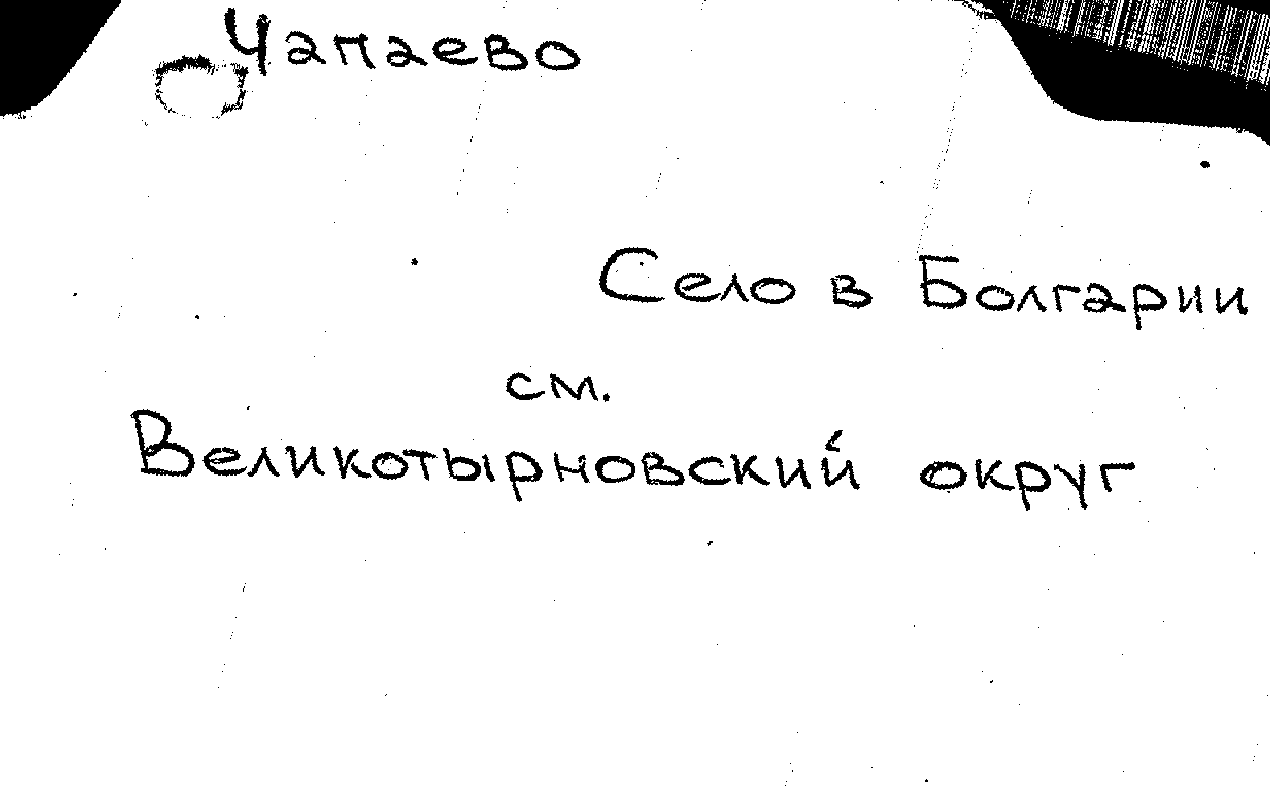 Чапаево
Село в Болгарии
см.
Великотырновский округ